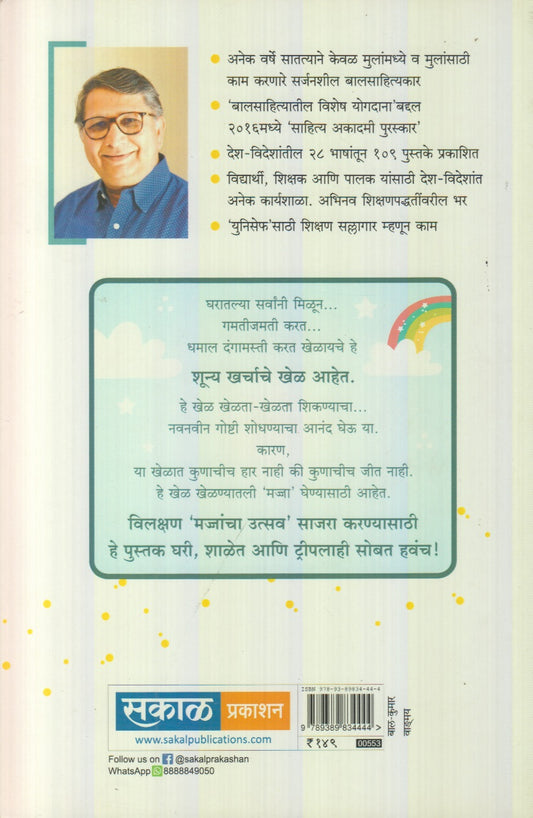 अनेक वर्षे सातत्याने केवळ मुलांमध्ये व मुलांसाठी
काम करणारे सर्जनशील बालसाहित्यकार
‘बालसाहित्यातील विशेष योगदाना’बद्दल
२०१६मध्ये ‘साहित्य अकादमी पुरस्कार’
देश-विदेशांतील २८ भाषांतून १०९ पुस्तके प्रकाशित
विद्यार्थी, शिक्षक आणि पालक यांसाठी देश-विदेशांत
अनेक कार्यशाळा. अभिनव शिक्षणपद्धतींवरील भर
‘युनिसेफ’साठी शिक्षण सल्लागार म्हणून काम
घरातल्या सर्वांनी मिळून...
गमतीजमती करत...
धमाल दंगामस्ती करत खेळायचे हे
शून्य खर्चाचे खेळ आहेत.
हे खेळ खेळता-खेळता शिकण्याचा...
नवनवीन गोष्टी शोधण्याचा आनंद घेऊ या.
कारण,
या खेळात कुणाचीच हार नाही की कुणाचीच जीत नाही.
हे खेळ खेळण्यातली ‘मज्जा’ घेण्यासाठी आहेत.
विलक्षण ‘मज्जांचा उत्सव’ साजरा करण्यासाठी
हे पुस्तक घरी, शाळेत आणि ट्रीपलाही सोबत हवंच!
सकाळ प्रकाशन
www.sakalpublications.com
Follow us on @sakalprakashan
WhatsApp 8888849050
ISBN 978-93-89834-44-4
9 789389 834444 >
₹१४९ 00553
बाल-कुमार
वाङ्मय